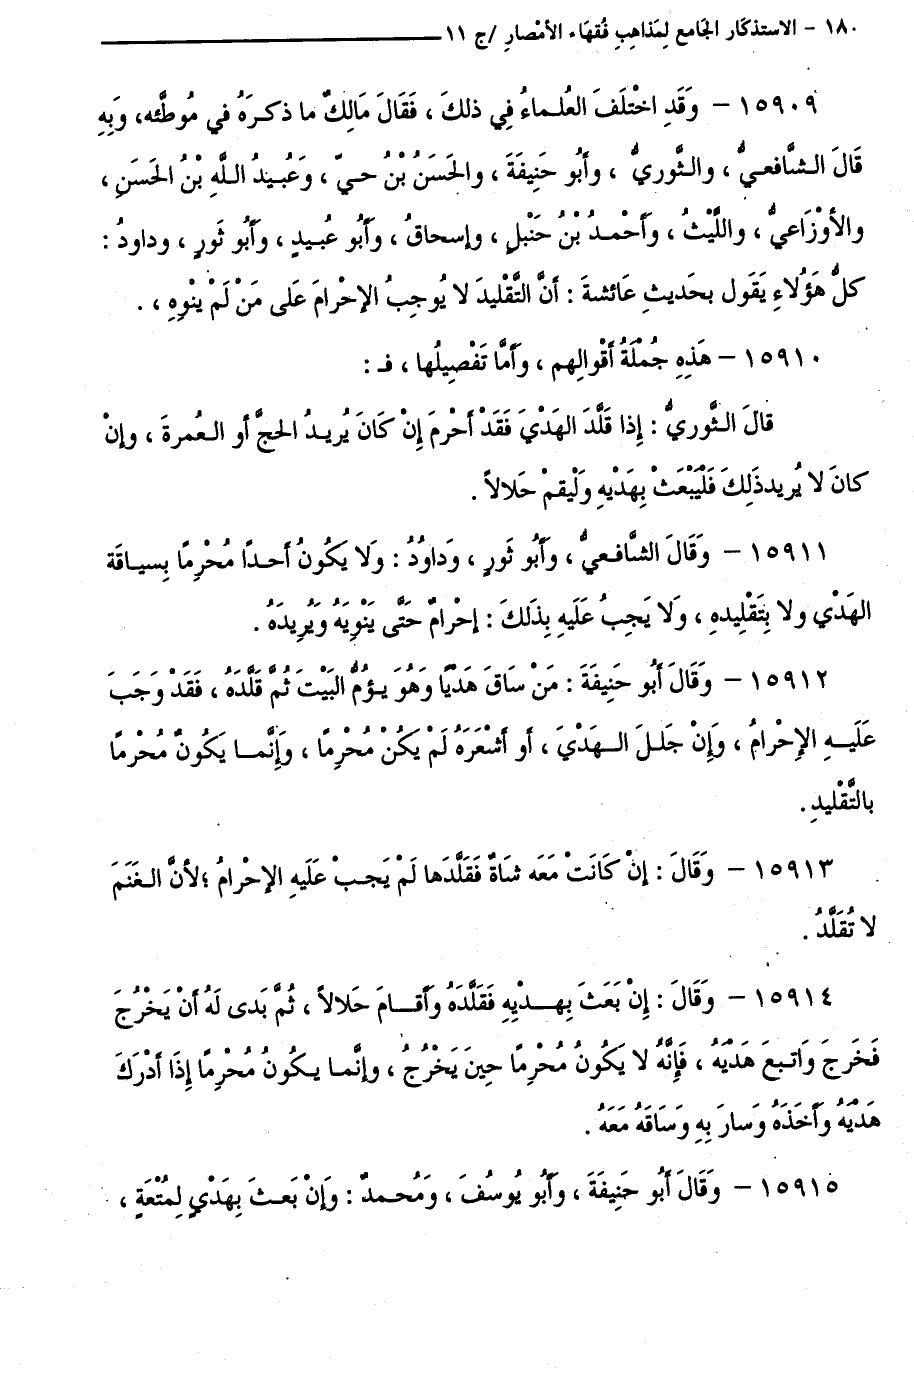 ١٨٠ – الاستذكار الجَامع لِمَذاهِبِ فُقهَاء الأمْصارِ /ج ١١
١٥٩٠٩ – وَقَدِ اخْتلَفَ العُلَماءُ فِي ذلكَ ، فَقَالَ مَالِكٌ ما ذكرَهُ في مُوطَّئه، وَبِهِ
قَالَ الشَّافعيُّ ، والثَّوريُّ ، وأَبُو حَنِيفَةَ ، والحَسَنُ بْنُ حيّ ، وَعُبيدُ اللَّهِ بْنُ الحَسَنِ ،
والأوْزَاعيُّ ، واللَّيْثُ ، وَأَحْمدُ بْنُ حَنْبلٍ ، وإسحاقُ ، وأَبو عُبيدٍ ، وَأَبُو ثَورٍ ، وداودُ :
كلُّ هَؤُلاءِ يَقَول بحَديثِ عَائشةَ : أنَّ التَّقليدَ لا يُوجِبُ الإحْرامَ عَلى مَنْ لَمْ يَنْوِهِ ، .
١٥٩١٠ – هَذِهِ جُمْلَةُ أقْوالِهم ، وَأَمَّا تَفْصِيلُها ، فـ :
قالَ الثَّوريُّ : إذا قلَّدَ الهَدْيَ فَقَدْ أحْرمَ إنْ كَانَ يُريدُ الحجَّ أو العُمرةَ ، وإنْ
كانَ لا يُريدذَلِكَ فَلْيَبْعَثْ بِهَدْيِهِ وَلْيقمْ حَلالاً .
١٥٩١١ – وَقَالَ الشَّافعيُّ ، وَأَبُو ثَورٍ ، وَداوُدُ : وَلا يَكُونُ أحَدًا مُحْرِمًا بِسياقَة
الهَدْي ولا بِتَقْليدهِ ، وَلا يَجِبُ عَلَيهِ بِذَلكَ : إحْرامٌ حَتَّى يَنْوِيَهُ وَيُريدَهُ .
١٥٩١٢ – وَقَالَ أَبُو حَنيفَةَ : مَنْ سَاقَ هَدْيًا وَهُوَ يَؤُمُّ البَيْتَ ثُمَّ قلَّدَهُ ، فَقَدْ وَجَبَ
عَلَيهِ الإحْرامُ ، وَإِنْ جَلَلَ الهَدْيَ ، أو أشْعَرَهُ لَمْ يَكُنْ مُحْرِمًا ، وَإِنَّما يَكُونُ مُحْرِمًا
بالتَّقْليدِ .
١٥٩١٣ – وَقَالَ : إنْ كَانَتْ مَعَه شاةٌ فَقَلَّدَها لَمْ يَجِبْ عَلَيهِ الإحْرامُ ؛لأنَّ الغَنَمَ
لا تُقَلَّدُ .
١٥٩١٤ – وَقَالَ : إنْ بَعَثَ بِهَدْيِهِ فَقَلَّدَهُ وأَقَامَ حَلالاً ، ثُمَّ بَدى لَهُ أَنْ يَخْرُجَ
فَخَرجَ وَاتبعَ هَدْيَهُ ، فَإِنَّهُ لا يَكُونُ مُحْرِمًا حينَ يَخْرُجُ ، وإنَّما يكُونُ مُحْرِمًا إذَا أدْرَكَ
هَدْيَهُ وأَخَذَهُ وَسارَ بِهِ وَسَاقَهُ مَعَهُ .
١٥٩١٥ – وَقَالَ أَبُو حَنِيفَةَ ، وَأَبُو يُوسُفَ ، وَمُحمدٌ : وَإنْ بَعثَ بِهَدْيٍ لِمُتْعَةٍ ،